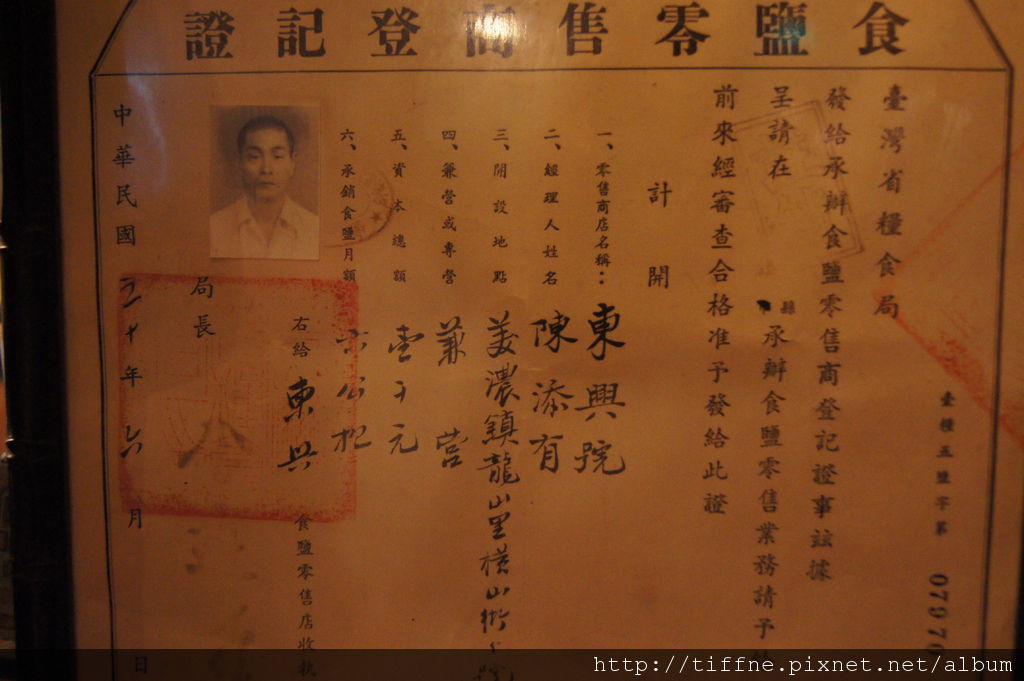 食鹽零售商登記證
臺灣省糧食局
臺糧五鹽字第 0797
發給承辦食鹽零售商登記證事茲據
呈請在 縣 承辦食鹽零售業務請予
前來經審查合格准予發給此證
計開
一、零售商店名稱：東興號
二、經理人姓名 陳添有
三、開設地點 美濃鎮龍山里橫山街
四、兼營或專營 兼營
五、資本總額 壹千元
六、承銷食鹽月額 六公担
右給 東興 食鹽零售店收執
局長
中華民國 二十年六月 日
http://tiffne.pixnet.net/album